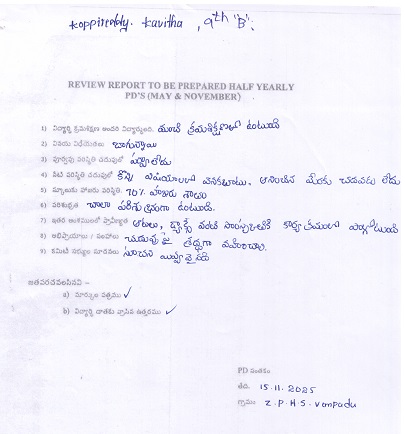 koppireddy. Kavitha , 9th 'B';
REVIEW REPORT TO BE PREPARED HALF YEARLY
PD'S (MAY & NOVEMBER)
1) విద్యార్ధి క్రమశిక్షణ మంచి క్రమశిక్షణలో ఉంటుంది
2) విధేయతలు బాగున్నాయి
3) పూర్వపు పరిస్థితి చదువులో పర్వాలేదు
4) చదువులో కొన్ని విషయాలలో వెనకబాటు, ఆశించిన మేరకు చదవడం లేదు
5) స్కూలుకు హాజరు పరిస్థితి. 70% హాజరు శాతం
6) పరిశుభ్రత చాలా పరిశుభ్రముగా ఉంటుంది.
7) ఇతర అంశములలో ఆటలు, డ్యాన్స్ వంటి సాంస్కృతిక కార్యక్రమాలలో పాల్గొంటుంది
8) అభిప్రాయాలు / సలహాలు చదువు పై శ్రద్ధగా వహించాలి.
9) కమిటీ సభ్యుల సూచనలు సూచన ఇవ్వడమైనది
జతపరచవలసినవి –
a) మార్కుల పత్రము ✓
b) విద్యార్ధి దాతకు వ్రాసిన ఉత్తరము ✓
PD సంతకం
తేది. 15.11.2025
గ్రామం Z.P.H.S. Vempadu